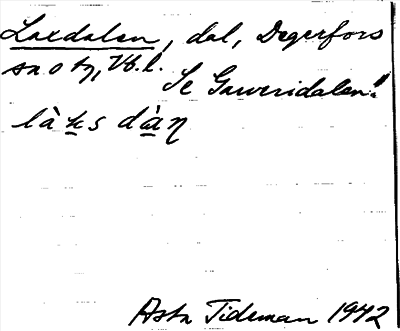 Laxdalen, dal, Degerfors
sn o tg, Vb. l.
Se Gaveridalen!
là k̲s dà̲ŋ
Asta Tideman 1942